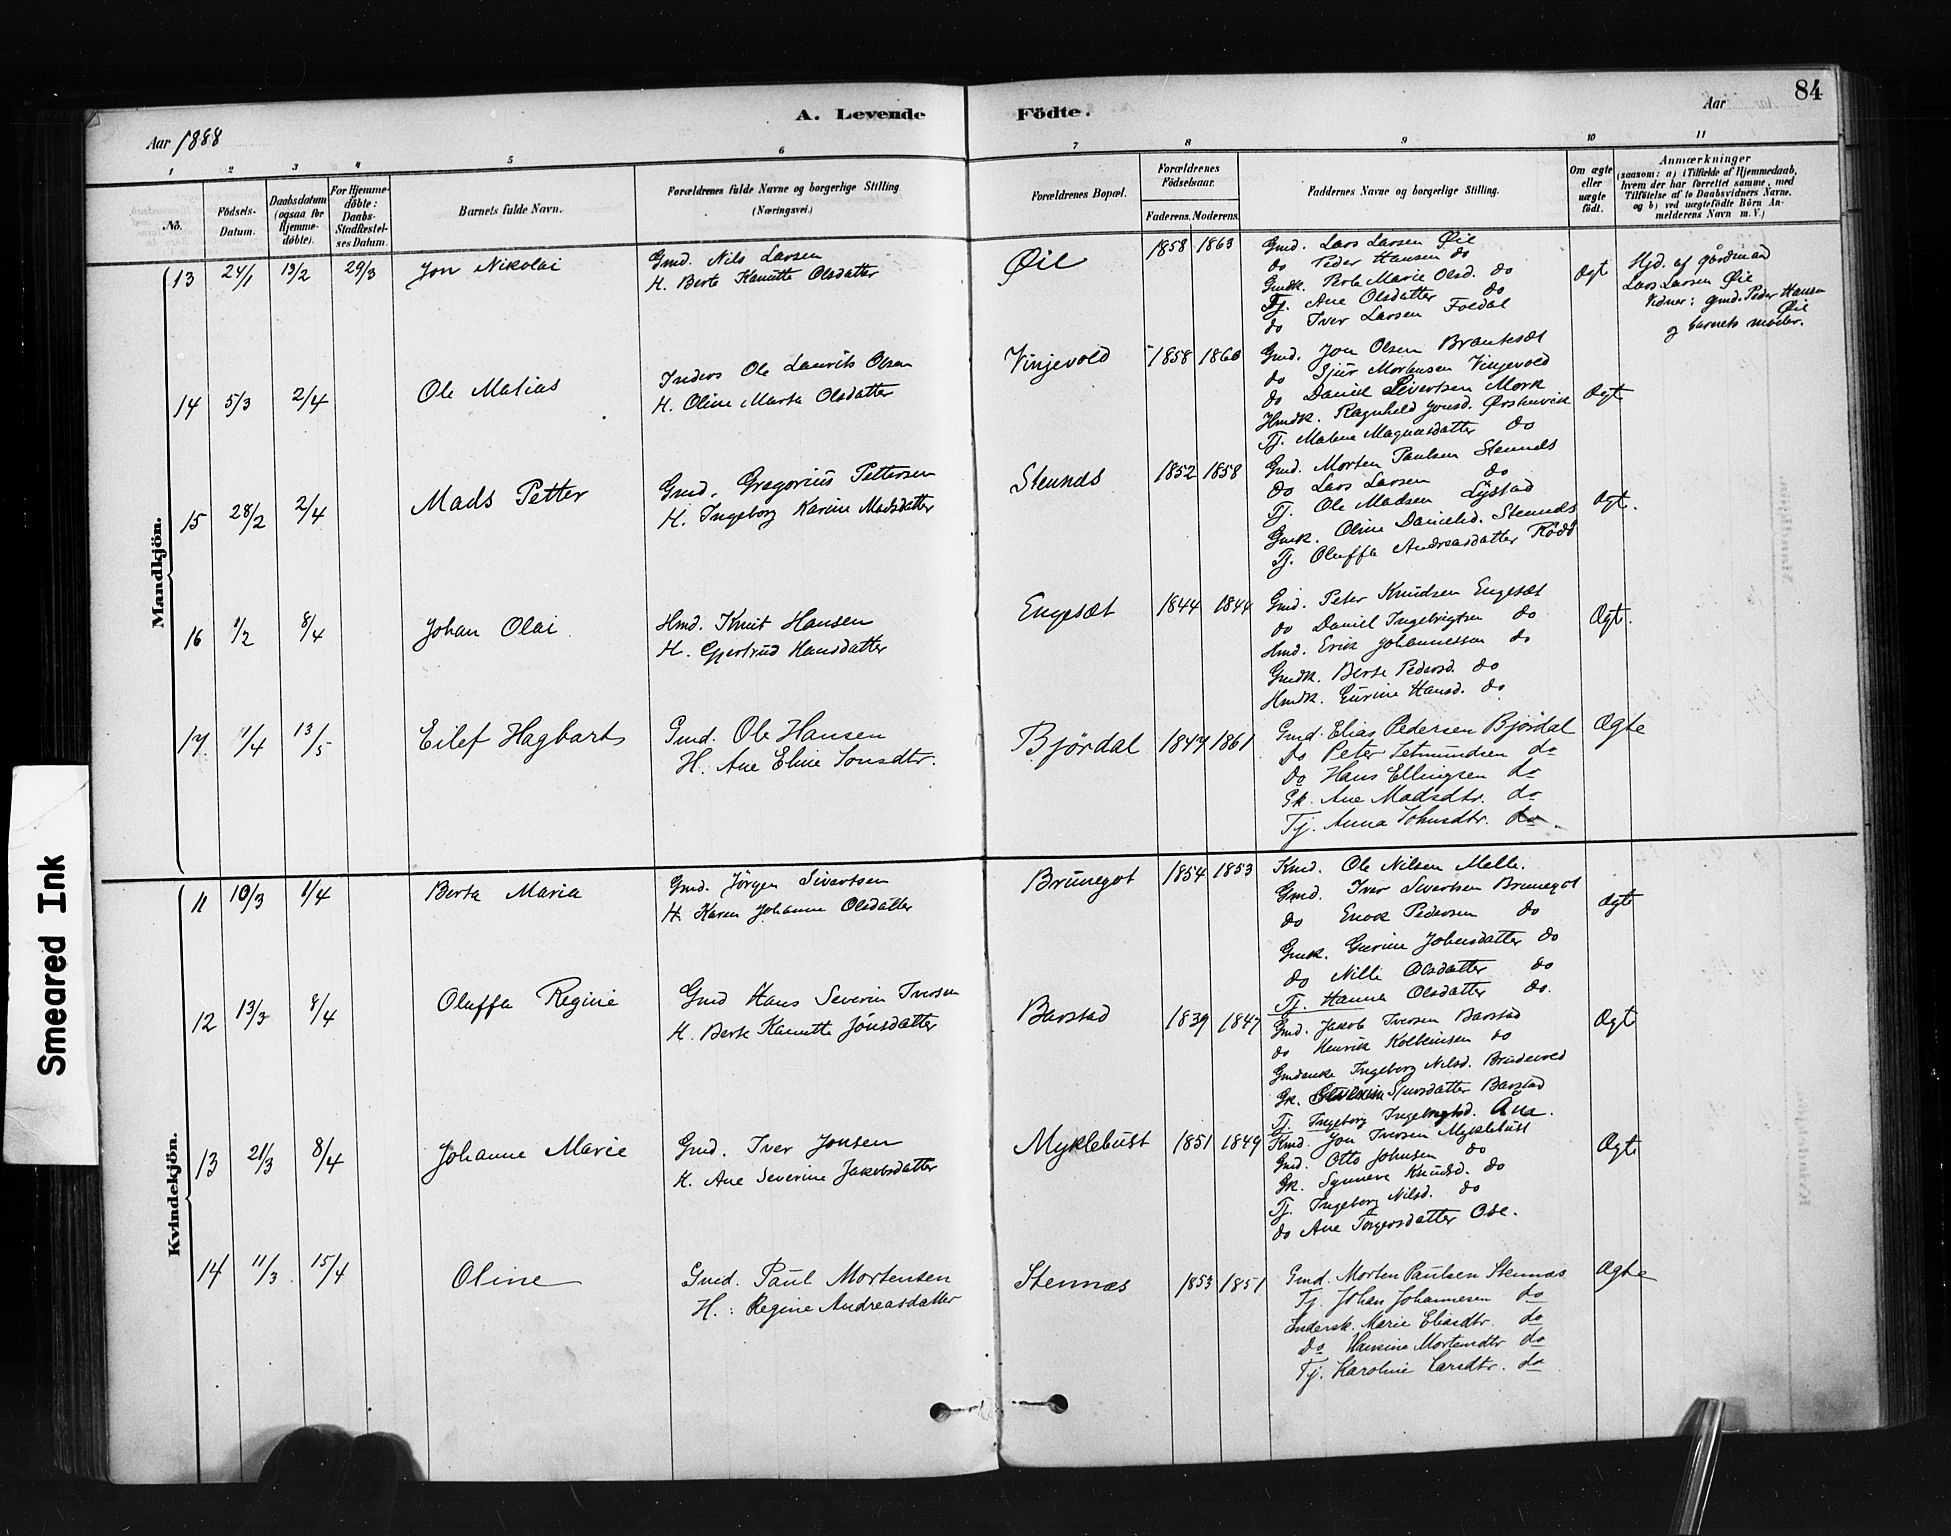 84
A. Levende Födte.
Aar 1888
Aar
1 2 3 4 5 6 7 8 9 10 11
No.
Födsels-Datum.
Daabsdatum (ogsaa for Hjemme-döbte).
For Hjemme-döbte: Daabs-Stadfæstel-ses Datum.
Barnets fulde Navn.
Forældrenes fulde Navne og borgerlige Stilling (Næringsvei.)
Forældrenes Bopæl.
Forældrenes Födselsaar.
Faderens. Moderens.
Faddernes Navne og borgerlige Stilling.
Om ægte eller uægte födt.
Anmærkninger (saasom: a) i Tilfælde af Hjemmedaab, hvem der har forrettet samme, med Tilföielse af to Daabsvidners Navne. og b) ved uægtefödte Börn An-melderens Navn m. V.)
Mandkjön.
13 24/1 13/2 29/3 Jon Nikolai
Gmd. Nils Larsen
H. Berte Kanutte Olsdatter
Øie 1858 1863
Gmd. Lars Larsen Øie
do Peder Hansen do
Gmdk. Berte Marie Olsd. do
Tj. Ane Olsdatter do
do Iver Larsen Foldal
Ægt
Hjd. af gårdmand
Lars Larsen Øie
Vidner: gmd. Peder Hansen Øie
og barnets moder.
14 5/3 2/4 Ole Matias
Inders Ole Laurits Olsen
H. Oline Marta Olsdatter
Vinjevold 1858 1860
Gmd. Jon Olsen
do Sjur Mortensen Vinjevold
do Daniel Sivertsen Mork
Hmdk. Ragnhild Jonsd. Ørstenvik
Tj. Malene Magnusdatter do
Ægt
15 28/2 2/4 Mads Petter
Gmd. Gregorius Pettersen
H. Ingeborg Karine Madsdatter
Stennes 1852 1858
Gmd. Morten Paulsen Stennes
do Lars Larsen do
Tj. Ole Madsen Lystad
Gmk. Oline Danielsd. Stennes
Tj. Oluffa Andreasdatter Rödö
Ægt.
16 1/2 8/4 Johan Olai
Hmd. Knut Hansen
H. Gjertrud Hansdatter
Engeset 1844 1844
Gmd. Peter Knudsen Engeset
do Daniel Ingebrigtsen do
Hmd. Erik Johannessen do
Gmdk. Berte Pedersd. do
Hmdk. Gurine Hansd. do
Ægt.
17 1/4 13/5 Eilef Hagbart
Gmd. Ole Hansen
H. Ane Eline Jonsdtr.
Björdal 1847 1861
Gmd. Elias Pedersen Björdal
do Peter Setmundsen do
do Hans Ellingsen do
Gk. Ane Madsdtr. do
Tj. Anna Johnsdtr. do.
Ægte
Kvindekjön.
11 10/3 1/4 Berta Maria
Gmd. Jörgen Sivertsen
H. Karen Johanne Olsdatter
Brunegot 1854 1853
Kmd. Ole Nilsen Melle.
Gmd. Iver Sivertsen Brunegot
do Enok Pedersen do
Gmk. Gurine Johnsdatter do
do Nille Olsdatter do
Tj. Hanna Olsdatter do.
Ægt
12 13/3 8/4 Oluffa Regine
Gmd Hans Severin Iversen
H. Berte Kanutte Jonsdatter
Barstad 1839 1847
Gmd. Jakob Iversen Barstad
do Henrik Kolbeinsen do
Ingeborg Nilsd. Brudevold
Gk. Sjursdatter Barstad
Tj. Ingeborg Ingebrigtsd. Åna.
Ægt
13 21/3 8/4 Johanne Marie
Gmd. Iver Jonsen
H. Ane Severine Jakobsdatter
Myklebust 1851 1849
Kmd. Jon Iversen Myklebust
Gmd. Otto Johnsen do
Gk. Synneve Knudsd. do
Tj. Ingeborg Nilsd. do
do Ane Torgersdatter Ose.
Ægt
14 11/3 15/4 Oline
Gmd. Paul Mortensen
H.: Regine Andreasdatter
Stennæs 1853 1851
Gmd. Morten Paulsen Stennæs
Tj. Johan Johannesen do
Indersk. Marie Eliasdtr. do
do Hansine Mortensdtr do
Tj. Karoline Larsdtr. do
Ægte
Smeared Ink